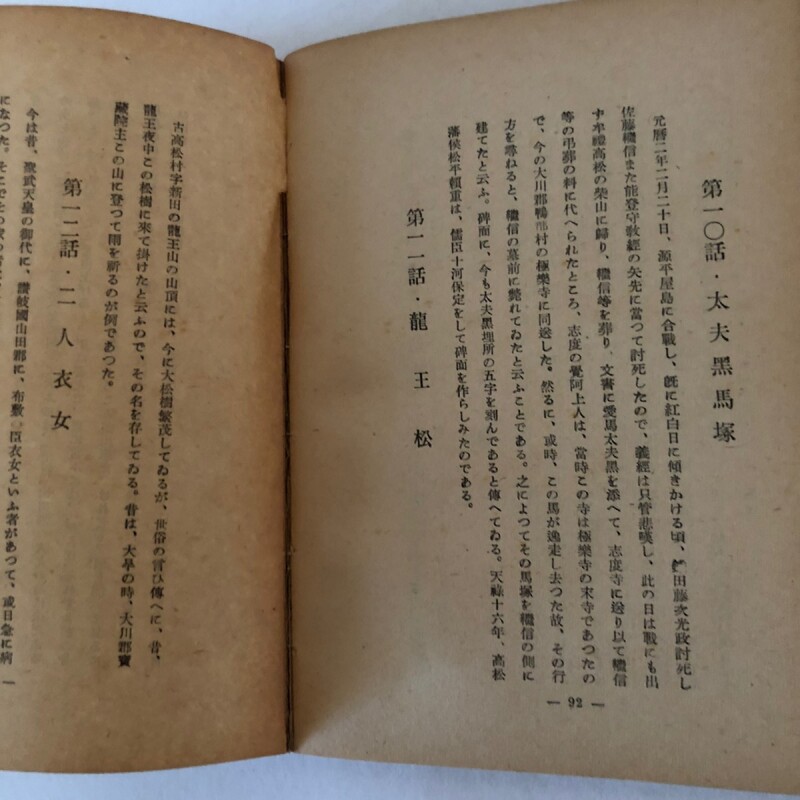 第一〇話・太夫黑馬塚
元曆二年二月二十日、源平屋島に合戰し、旣に紅白日に傾きかける頃、田藤次光政討死し
佐藤繼信また能登守敎經の矢先に當つて討死したので、義經は只管悲嘆し、此の日は戰にも出
ず牟禮高松の柴山に歸り、繼信等を葬り、文書に愛馬太夫黑を添へて、志度寺に送り以て繼信
等の弔葬の料に代へられたところ、志度の覺阿上人は、當時この寺は極樂寺の末寺であつたの
で、今の大川郡鴨部村の極樂寺に同送した。然るに、或時、この馬が逸走し去つた故、その行
方を尋ねると、繼信の墓前に斃れてゐたと云ふことである。之によつてその馬塚を繼信の側に
建てたと云ふ。碑面に、今も太夫黑埋所の五字を刻んであると傳へてゐる。天祿十六年、高松
藩侯松平賴重は、儒臣十河保定をして碑面を作らしみたのである。
第一一話・龍王松
— 92 —
古高松村字新田の龍王山の山頂には、今に大松樹繁茂してゐるが、世俗の言ひ傳へに、昔、
龍王夜中この松樹に來て掛けたと云ふので、その名を存してゐる。昔は、大旱の時、大川郡寶
藏院主この山に登つて雨を祈るのが例であつた。
第一二話・二人衣女
今は昔、聖武天皇の御代に、讚岐國山田郡に、布敷臣衣女といふ者があつて、或日急に病
になつた。そこで